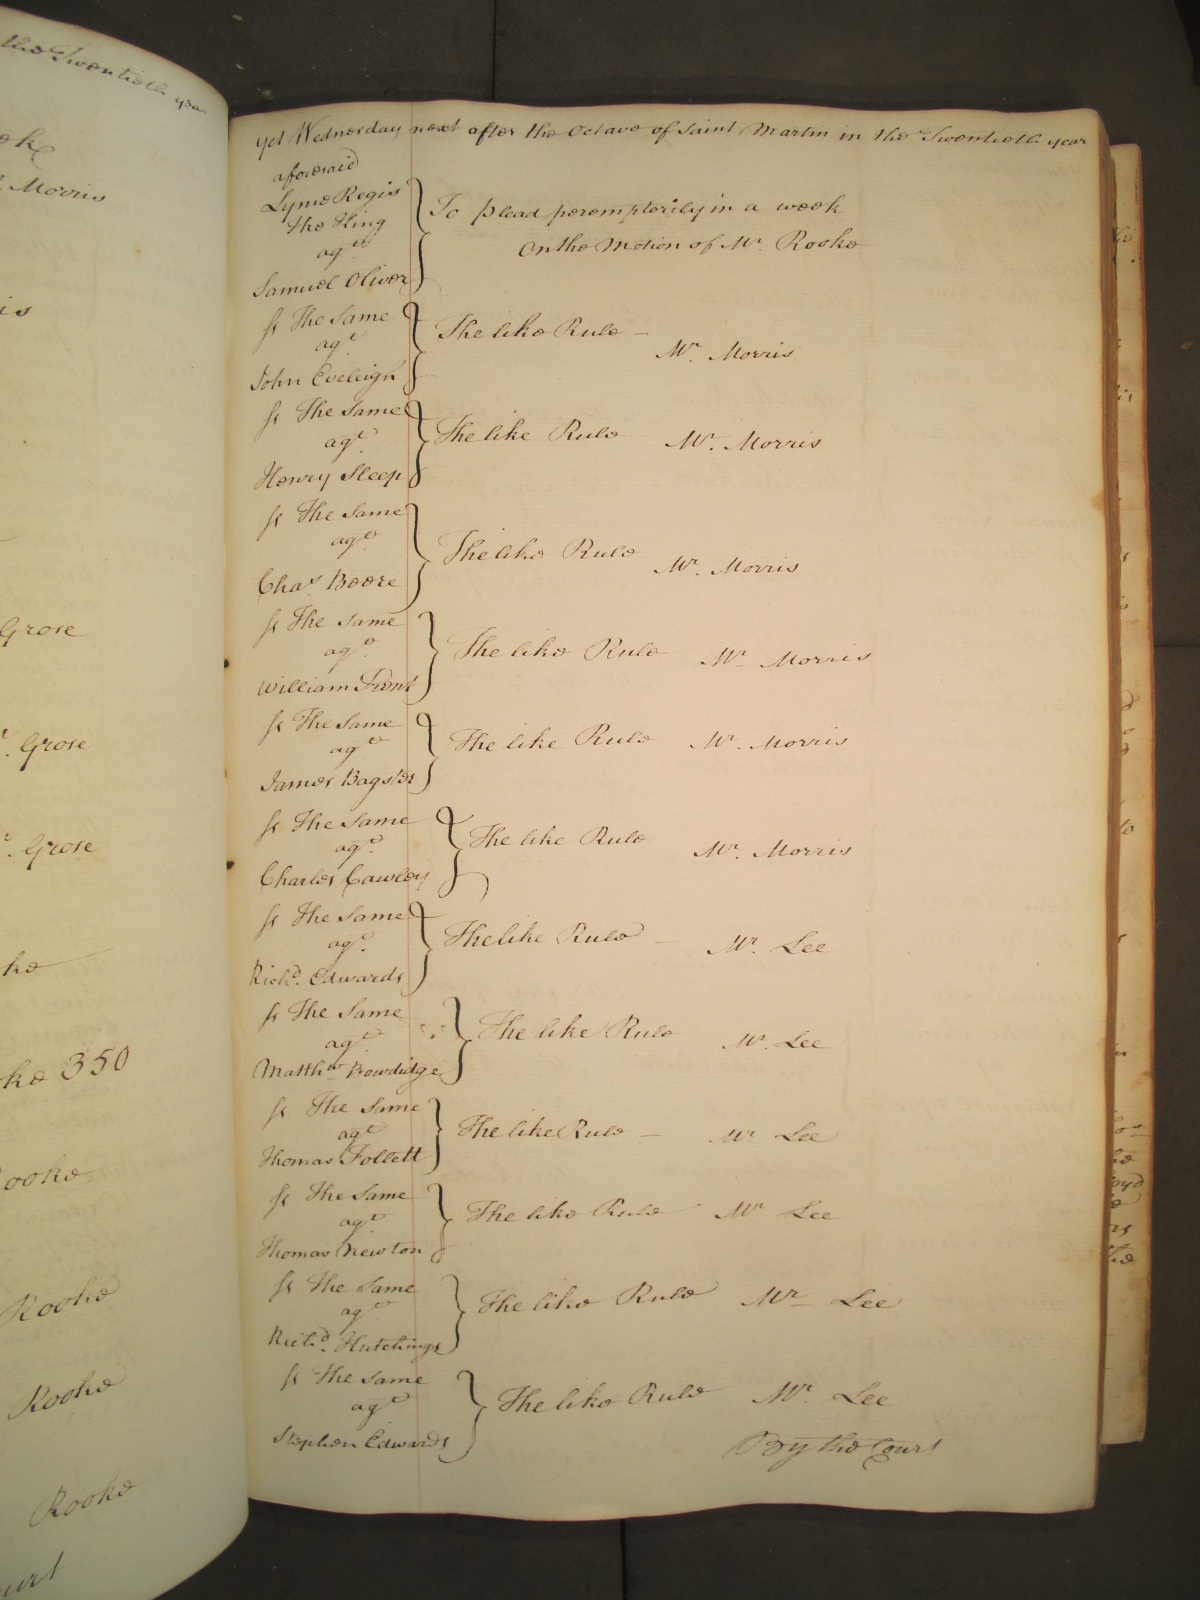 the Twentieth year
Morris
is
Grose
Grose
Grose
350
Rooke
Rooke
Rooke
yet Wednesday next after the Octave of Saint Martin in the Twentieth year
aforesaid
Lyme Regis
The King
agt
Samuel Oliver
To plead peremptorily in a week
On the Motion of Mr. Rooke
ss The Same
agt
John Eveleigh
The like Rule —
Mr. Morris
ss The Same
agt
Henry Sleep
The like Rule Mr. Morris
ss The Same
agt
Chas Boore
The like Rule Mr. Morris
ss The Same
agt
William Front
The like Rule Mr. Morris
ss The Same
agt
James Bagster
The like Rule Mr. Morris
ss The Same
agt
Charles Cawley
The like Rule Mr. Morris
ss The Same
agt
Richd. Edwards
The like Rule — Mr. Lee
ss The Same
agt
Matthw Bowdidge
The like Rule Mr. Lee
ss The Same
agt
Thomas Follett
The like Rule — Mr Lee
ss The Same
agt
Thomas Newton
The like Rule Mr Lee
ss The Same
agt
Richd. Hutchings
The like Rule Mr Lee
ss The Same
agt
Stephen Edwards
The like Rule Mr. Lee
By the Court